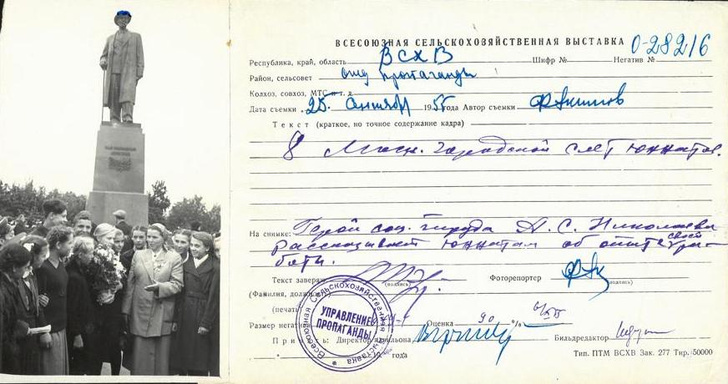 ВСЕСОЮЗНАЯ СЕЛЬСКОХОЗЯЙСТВЕННАЯ ВЫСТАВКА
Республика, край, область ВСХВ Шифр № Негатив № 0-28216
Район, сельсовет отд пропаганды
Колхоз, совхоз, МТС и т. д.
Дата съемки „25" 1955 года Автор съемки
Текст (краткое, но точное содержание кадра)
8 Моск. городской слет юннатов.
На снимке: Герой соц. труда А. С. Николаева
рассказывает юннатам об опыте своей ра-
боты.
Текст заверен (подпись) Фоторепортер (подпись)
(Фамилия,
(печать)
Размер Оценка
Директор Бильдредактор
года Тип. ПТМ ВСХВ Зак. 277 Тир.-50000
Всесоюзная Сельскохозяйственная Выставка
УПРАВЛЕНИЕ
ПРОПАГАНДЫ